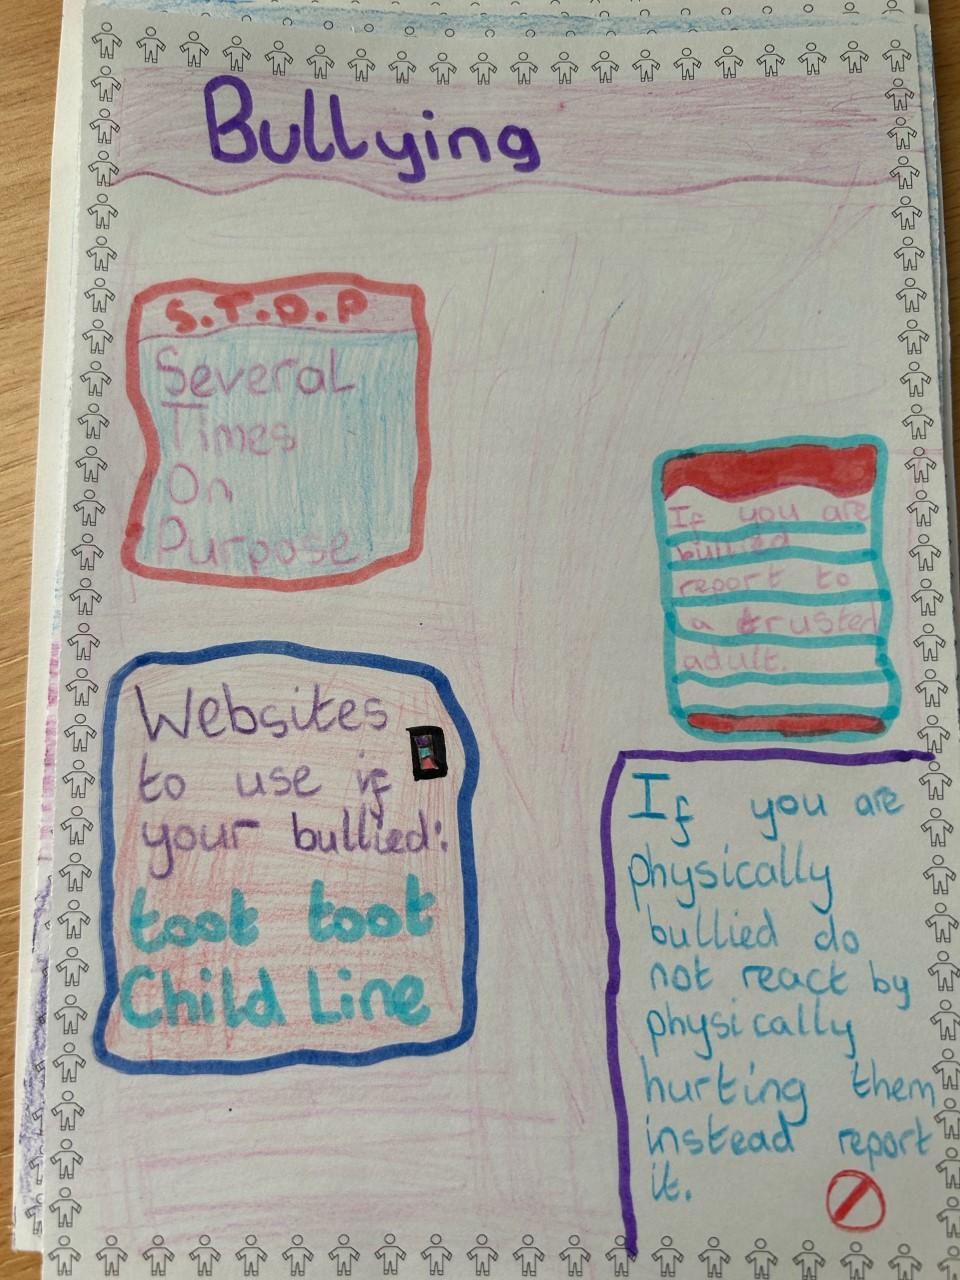 Bullying
S.T.O.P
Several
Times
On
Purpose
If you are
bullied
report to
a trusted
adult.
Websites
to use if
your bullied:
toot toot
Child Line
If you are
physically
bullied do
not react by
physically
hurting them
instead report
it.